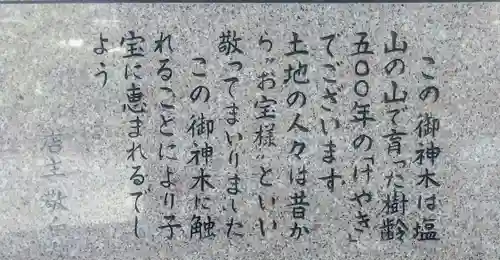 この御神木は塩
山の山で育った樹齢
五〇〇年の「けやき」
でございます
土地の人々は昔か
ら"お宝様"といい
敬ってまいりました
この御神木に触
れることにより子
宝に恵まれるでし
よう
店主 敬白